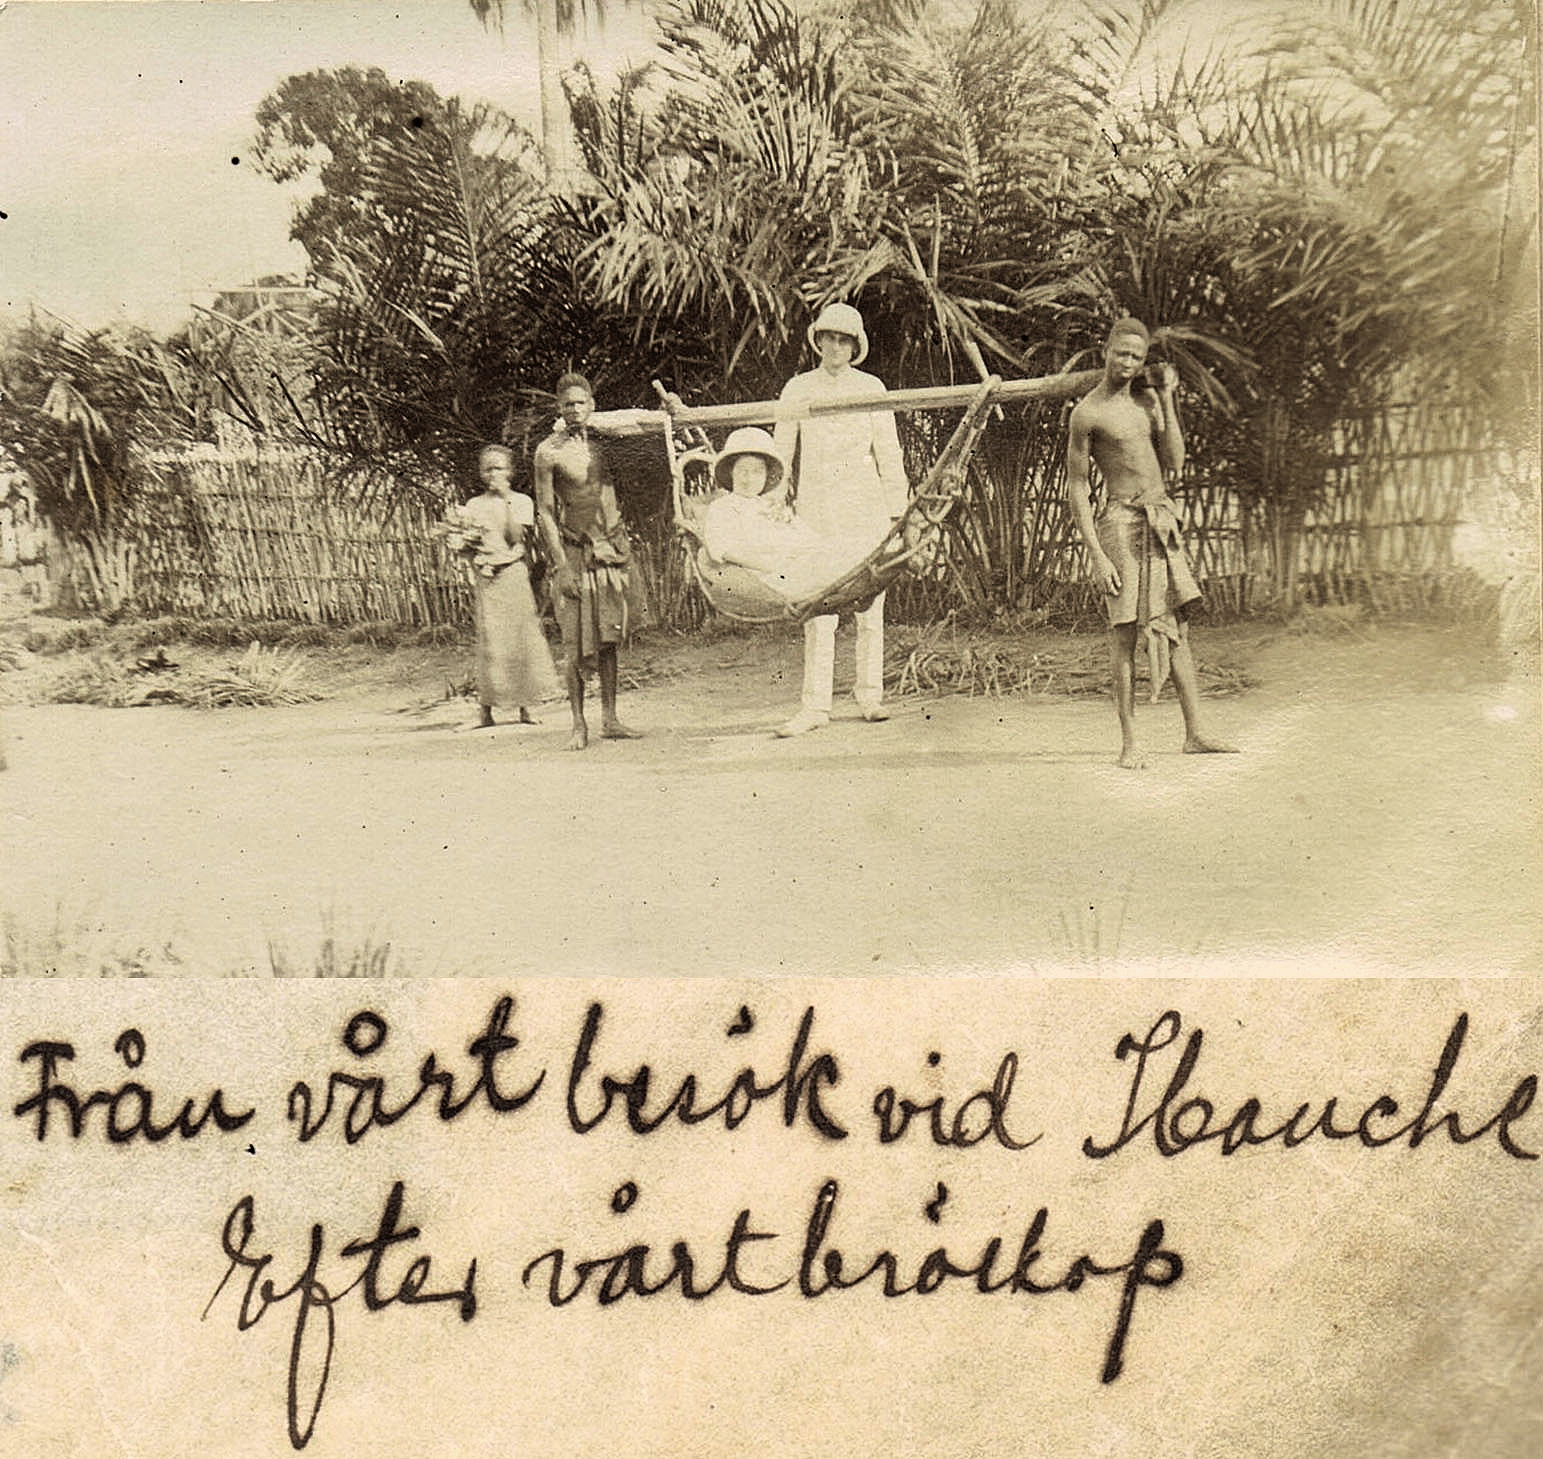 Från vårt besök vid Ibanche
Efter vårt bröllop